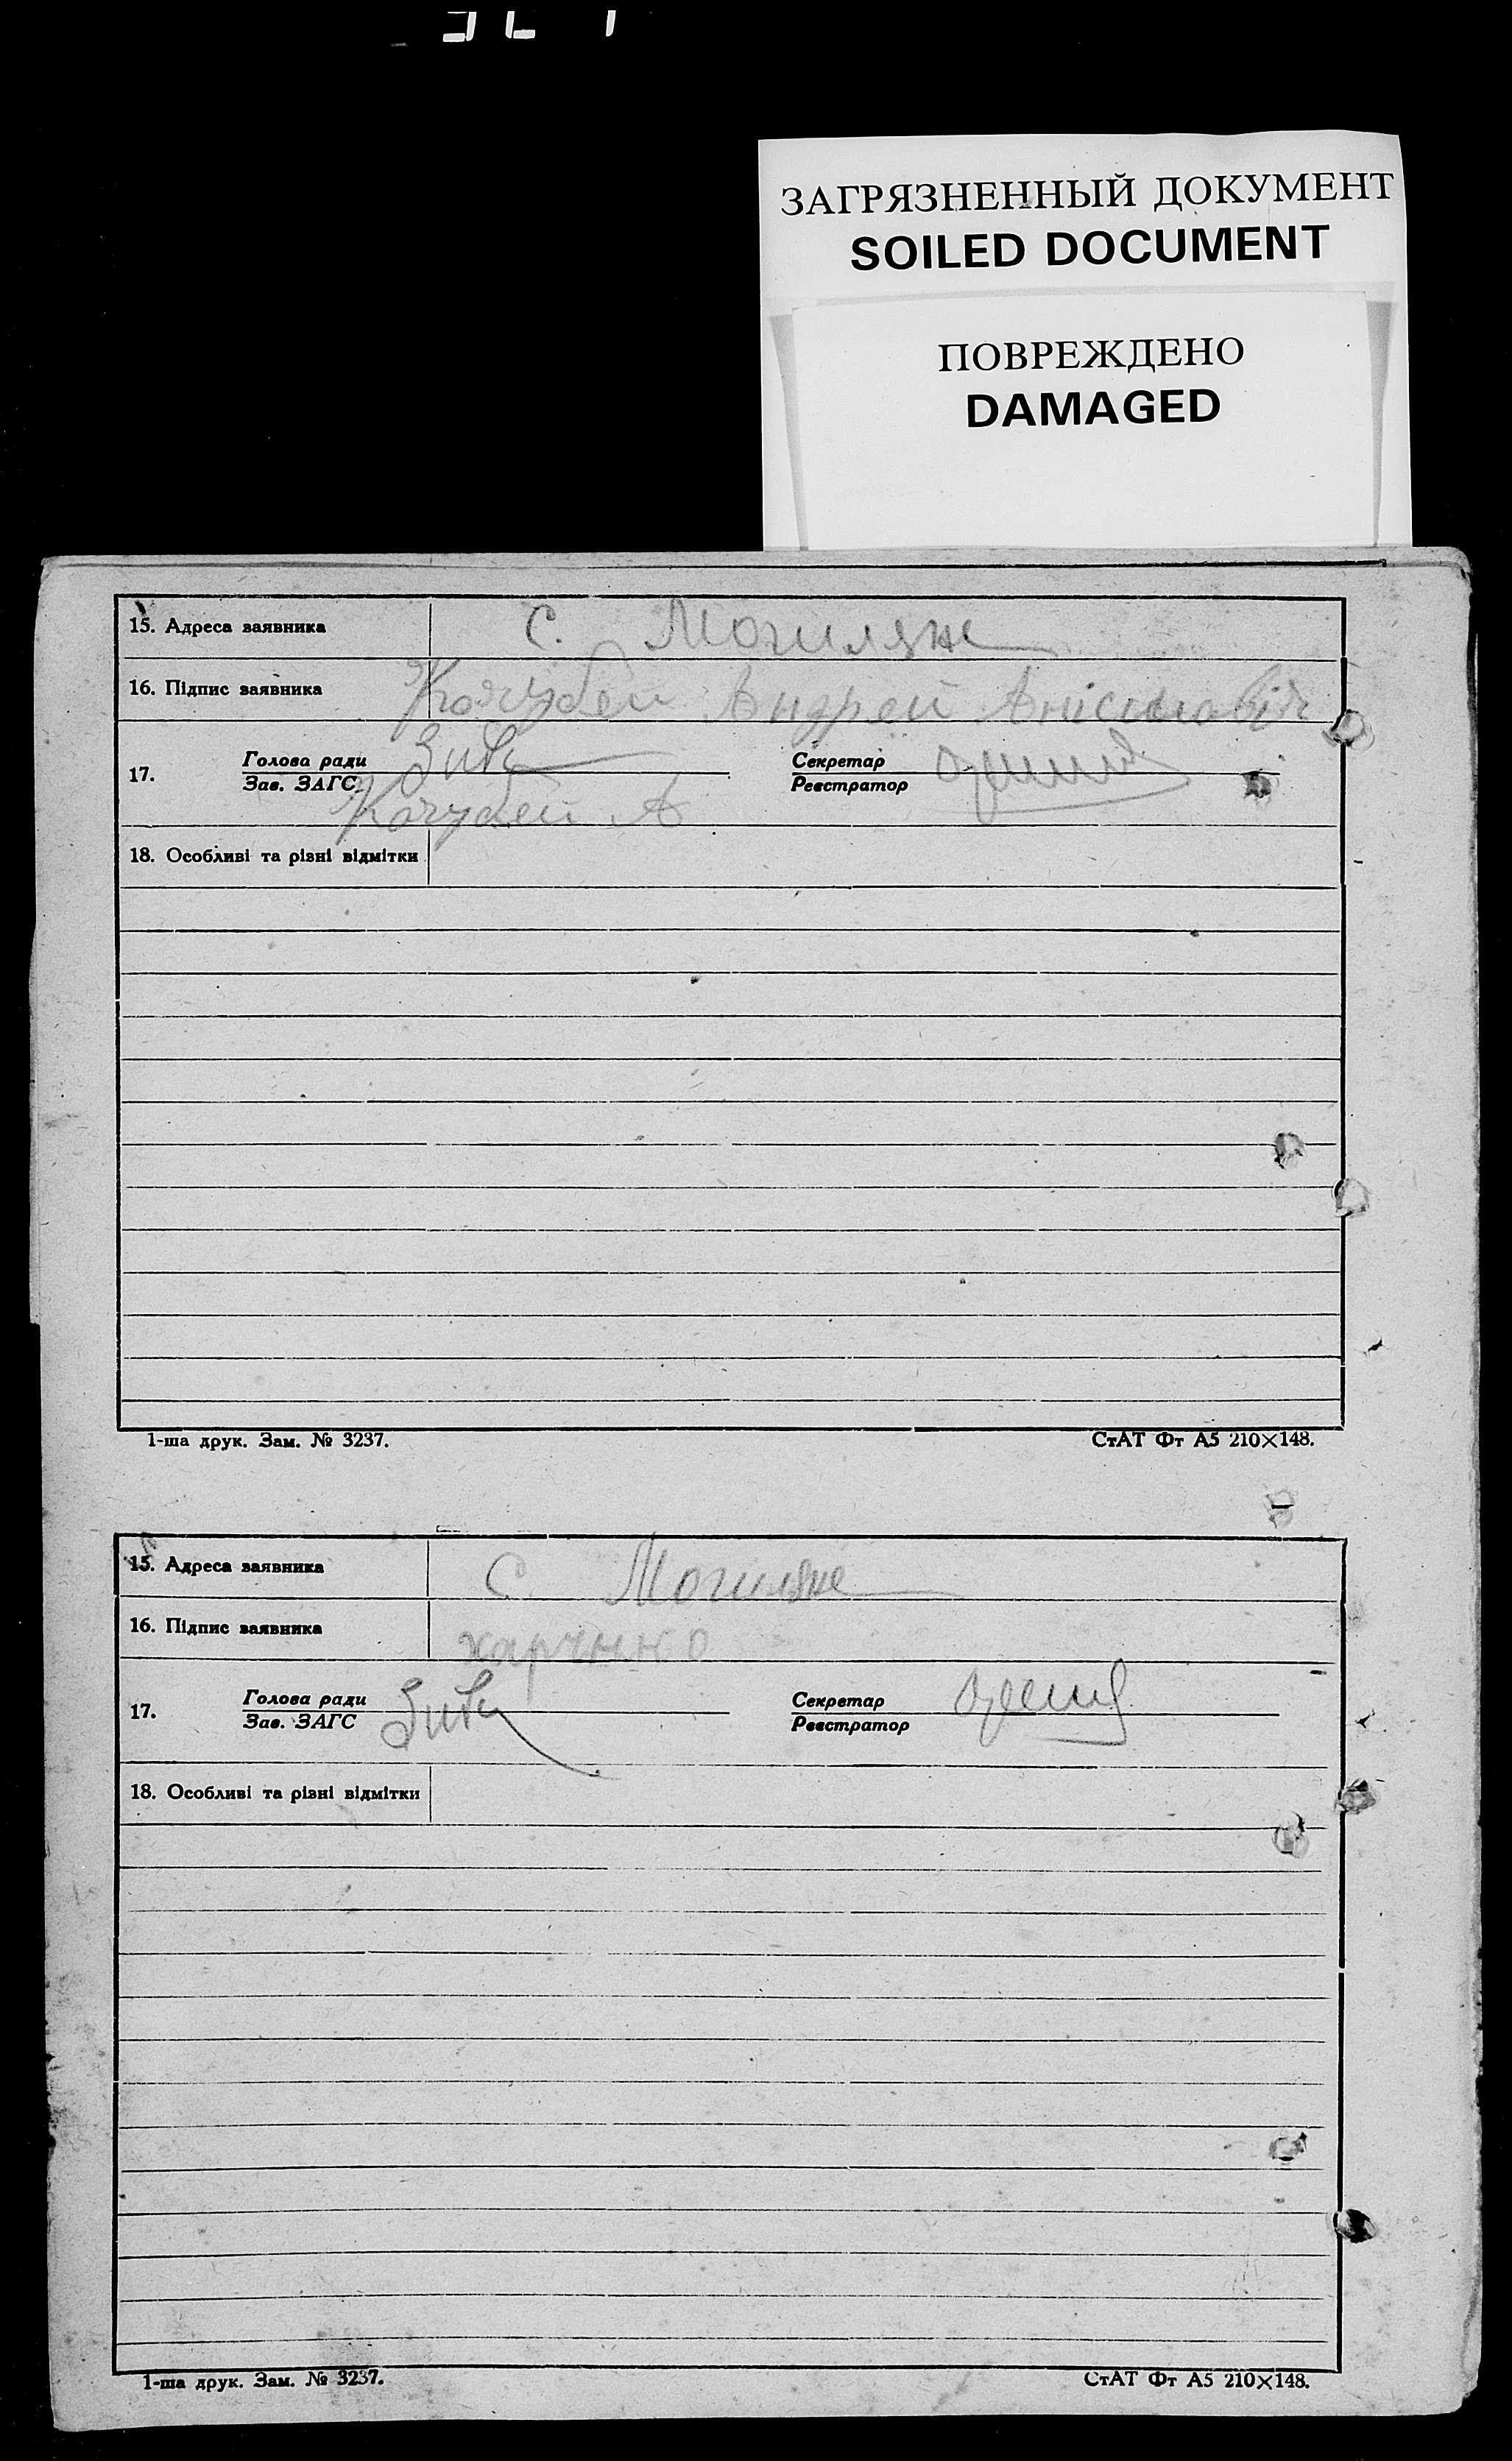 ЗАГРЯЗНЕННЫЙ ДОКУМЕНТ
SOILED DOCUMENT
ПОВРЕЖДЕНО
DAMAGED
15. Адреса заявника С. Могиляне
16. Підпис заявника Кочубей Андрей Анісимовіч
17. Голова ради Секретар
Зав. ЗАГС Реєстратор
Кочубей А
18. Особливі та різні відмітки
1-ша друк. Зам. № 3237. СтАТ Фт А5 210×148.
15. Адреса заявника С. Могиляне
16. Підпис заявника харчнко
17. Голова ради Секретар
Зав. ЗАГС Реєстратор
18. Особливі та різні відмітки
1-ша друк. Зам. № 3237. СтАТ Фт А5 210×148.